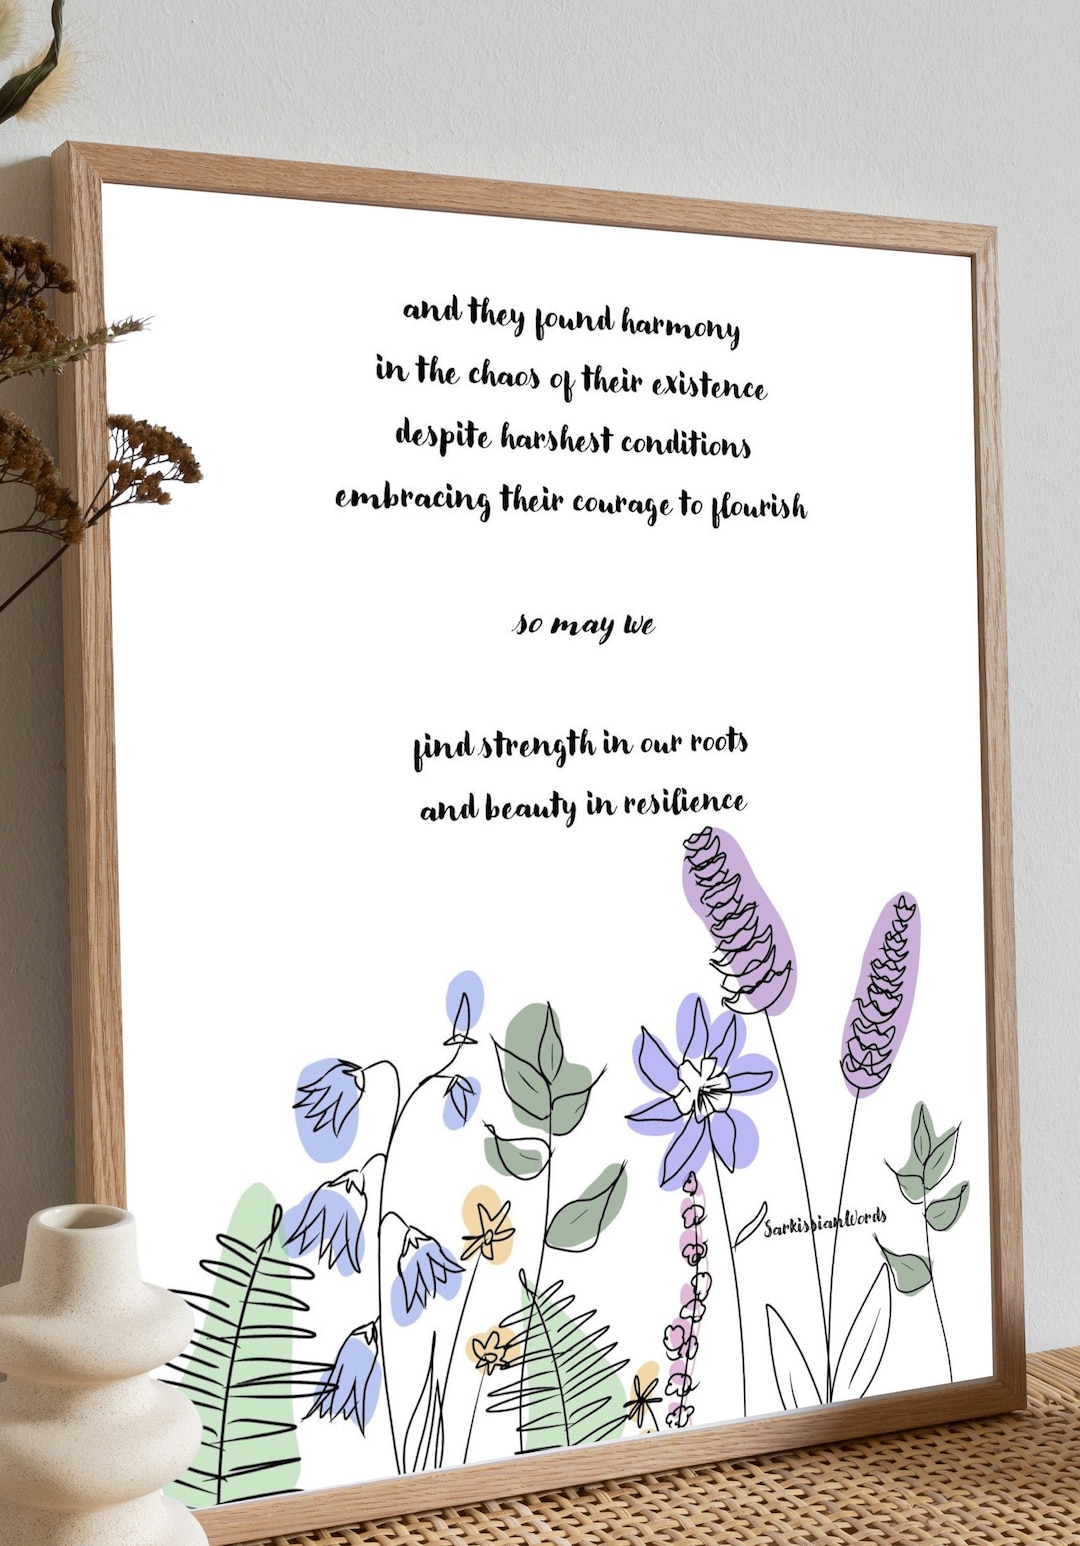 and they found harmony
in the chaos of their existence
despite harshest conditions
embracing their courage to flourish
so may we
find strength in our roots
and beauty in resilience
SarkissianWords